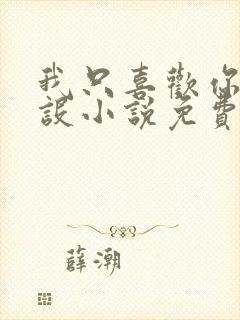 我只喜歡你
設小說免費
薛潮